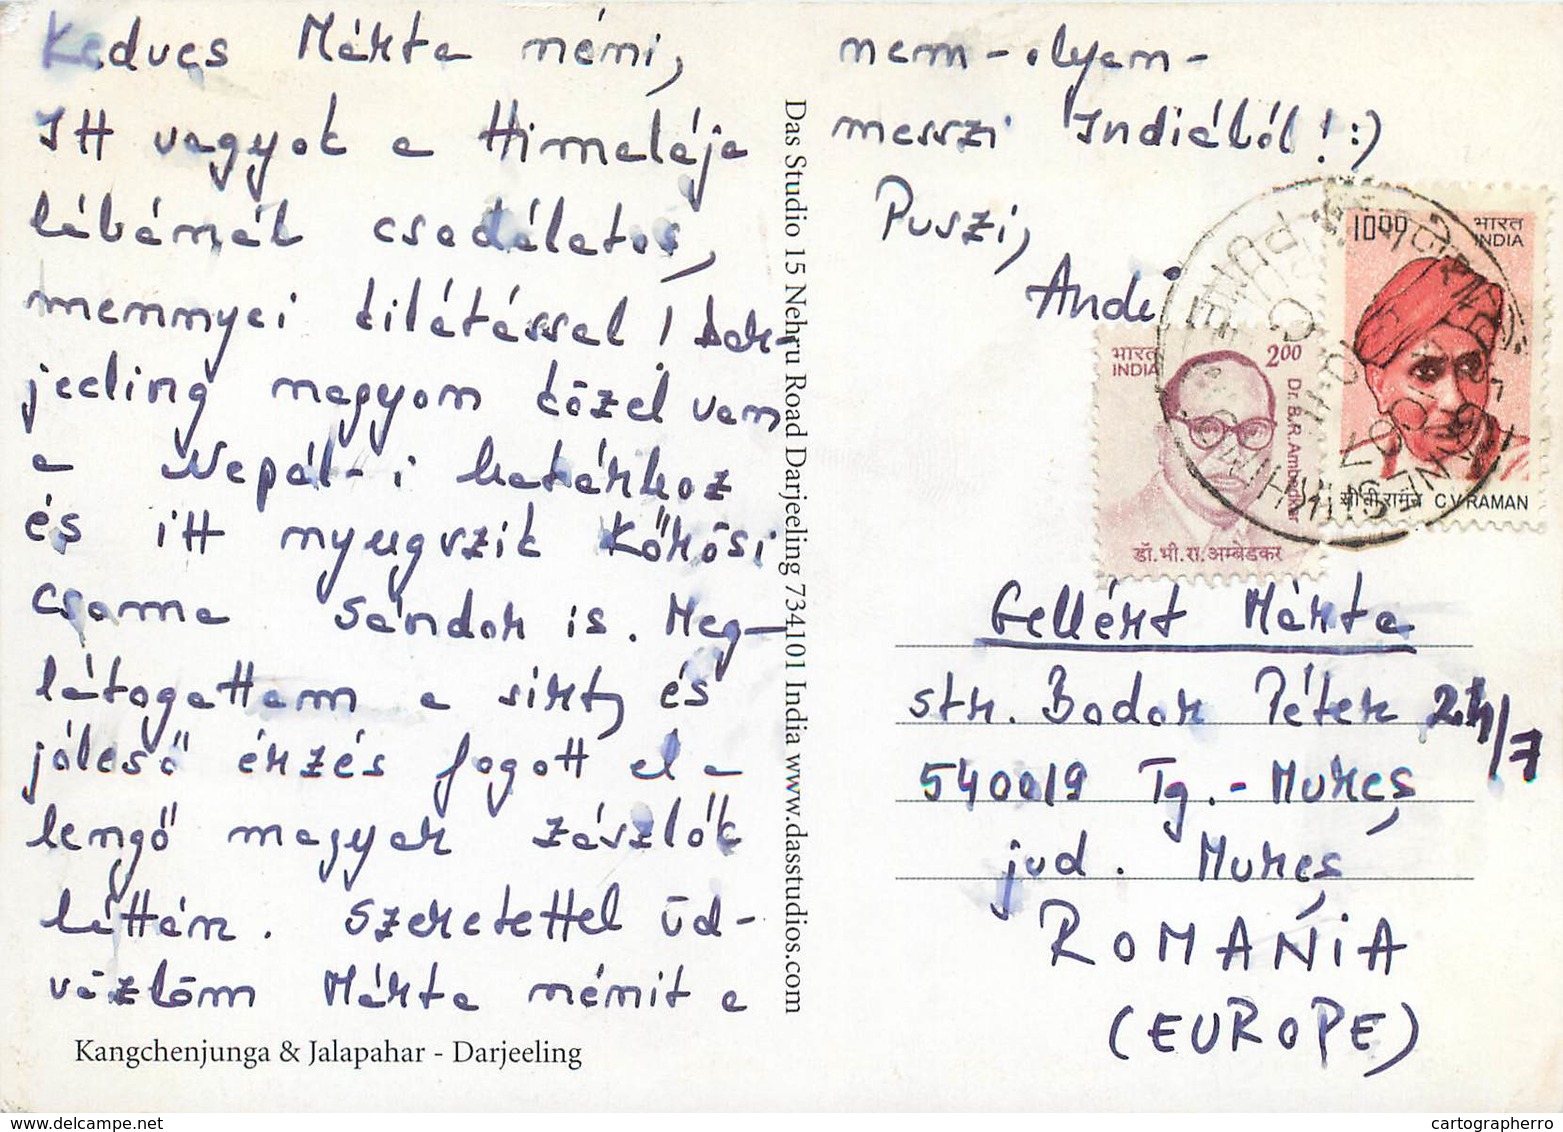 Kedves Márta néni,
Itt vagyok a Himalája
lábánál csodálatos,
mennyei kilátással! Dar-
jeeling nagyon közel van
a Nepál-i határhoz
és itt nyugvzik Kőrösi
Csoma Sándor is. Meg-
látogattam a sírt, és
jóleső érzés fogott el a
lengő magyar zászlók
láttán. Szeretettel üd-
vözlöm Márta nénit a
Kangchenjunga & Jalapahar - Darjeeling
Das Studio 15 Nehru Road Darjeeling 734101 India www.dasstudios.com
nem - olyan -
messzi Indiából! :)
Puszi,
Andi
1000
भारत
INDIA
सी वी रामन C V RAMAN
भारत
INDIA
200
Dr. B.R. Ambedkar
डॉ. भी. रा. अम्बेडकर
Gellért Márta
str. Bodor Péter
/7
540019 Tg. - Mureș
jud. Mureș
ROMANIA
(EUROPE)
cartographerro